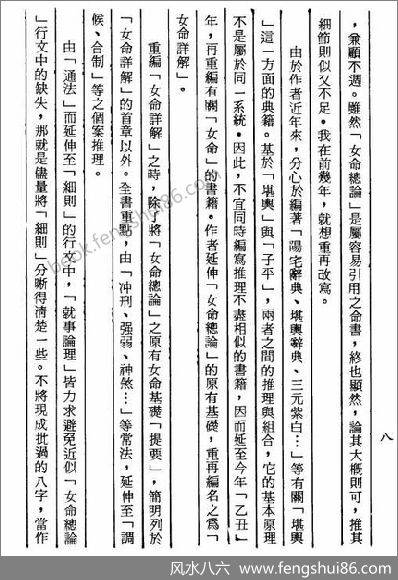 ，兼顧不週。雖然「女命總論」是屬容易引用之命書，終也顯然，論其大概則可，推其
細節則似又不足。我在前幾年，就想重再改寫。
由於作者近年來，分心於編著「陽宅辭典、堪輿辭典、三元紫白…」等有關「堪輿
」這一方面的典籍。基於「堪輿」與「子平」，兩者之間的推理與組合，它的基本原理
不是屬於同一系統。因此，不宜同時編寫推理不盡相似的書籍，因而延至今年「乙丑」
年，再重編有關「女命」的書籍。作者延伸「女命總論」的原有基礎，重再編名之為「
女命詳解」。
重編「女命詳解」之時，除將「女命總論」之原有女命基礎「提要」，簡明列於
「女命詳解」的首章以外。全書重點，由「冲刑、强弱、神煞…」等常法，延伸至「調
候、合制」等之個案推理。
由「通法」而延伸至「細則」的行文中，「就事論理」皆力求避免近似「女命總論
」行文中的缺失，那就是儘量將「細則」分晰得清楚一些。不將現成批過的八字，當作
八
book.fengshui86.com
风水八六 - fengshui86.com